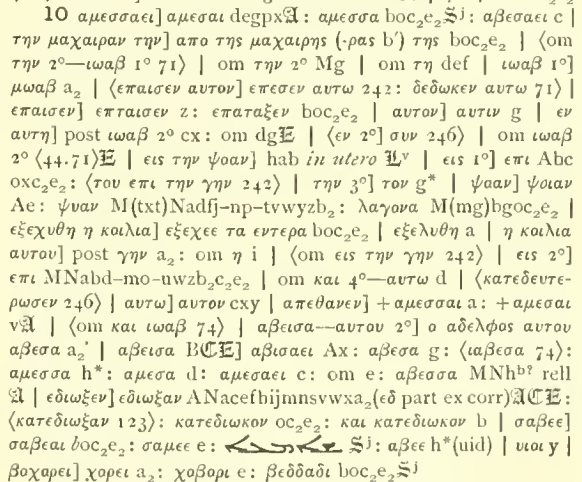 10 αμεσσαει] αμεσαι degpx𝕬: αμεσσα boc₂e₂𝕾ʲ: αβεσαει c |
την μαχαιραν την] απο της μαχαιρης (-ρας b′) της boc₂e₂ | ⟨om
την 2°—ιωαβ 1° 71⟩ | om την 2° Mg | om τη def | ιωαβ 1°]
μωαβ a₂ | ⟨επαισεν αυτον] επεσεν αυτω 242: δεδωκεν αυτω 71⟩ |
επαισεν] επταισεν z: επαταξεν boc₂e₂ | αυτον] αυτιν g | εν
αυτη] post ιωαβ 2° cx: om dg𝕰 | ⟨εν 2°] συν 246⟩ | om ιωαβ
2° ⟨44.71⟩𝕰 | εις την ψοαν] hab in utero 𝕷ᵛ | εις 1°] επι Abc
oxc₂e₂: ⟨του επι την γην 242⟩ | την 3°] τον g* | ψοαν] ψοιαν
Ae: ψυαν M(txt)Nadfj-np-tvwyzb₂: λαγονα M(mg)bgoc₂e₂ |
εξεχυθη η κοιλια] εξεχεε τα εντερα boc₂e₂ | εξελυθη a | η κοιλια
αυτου] post γην a₂: om η i | ⟨om εις την γην 242⟩ | εις 2°]
επι MNabd-mo-uwzb₂c₂e₂ | om και 4°—αυτω d | ⟨κατεδευτε-
ρωσεν 246⟩ | αυτω] αυτον cxy | απεθανεν] +αμεσσαι a: +αμεσαι
v𝕬 | ⟨om και ιωαβ 74⟩ | αβεισα—αυτου 2°] ο αδελφος αυτου
αβεσα a₂ | αβεισα B𝕮𝕰] αβισαει Ax: αβεσα g: ⟨ιαβεσα 74⟩:
αμεσσα h*: αμεσα d: αμεσαει c: om e: αβεσσα MNhᵇ? rell
𝕬 | εδιωξεν] εδιωξαν ANacefhijmnsvwxa₂(εδ part ex corr)𝕬𝕮𝕰:
⟨κατεδιωξαν 123⟩: κατεδιωκον oc₂e₂: και κατεδιωκον b | σαβεε]
σαβεαι boc₂e₂: σαμεε e: 𝕾ʲ: αβεε h*(uid) | υιοι y |
βοχαρει] χορει a₂: χοβορι e: βεδδαδι boc₂e₂𝕾ʲ